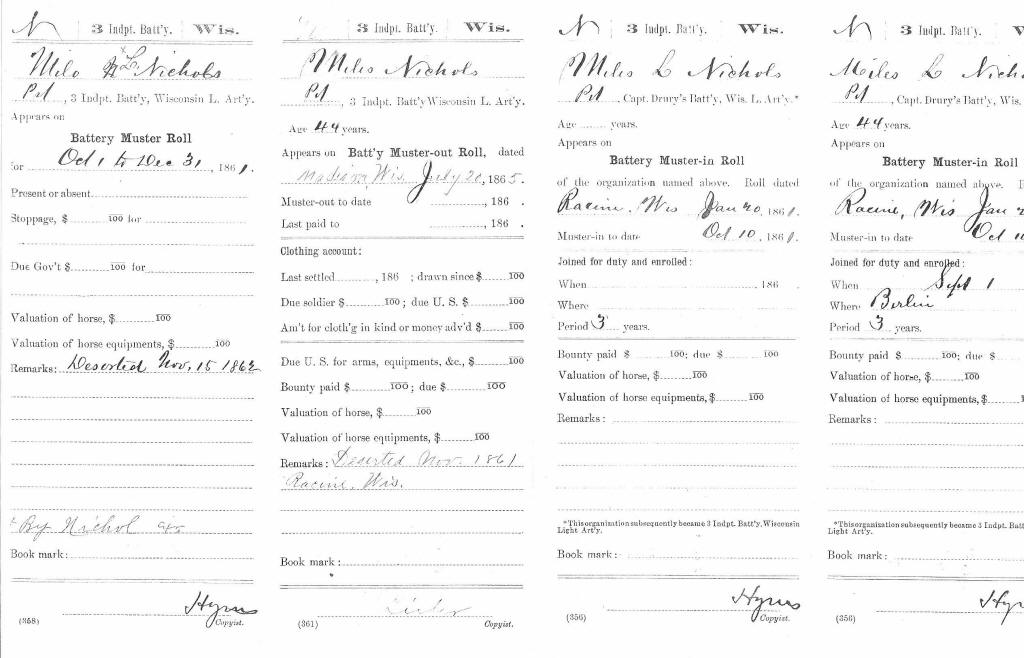 N 3 Indpt. Batt'y. Wis.
Milo L Nichols
Pvt, 3 Indpt. Batt'y, Wisconsin L. Art'y.
Appears on
Battery Muster Roll
for Oct 1 to Dec 31, 1861.
Present or absent
Stoppage, $ 100 for
Due Gov't $ 100 for
Valuation of horse, $ 100
Valuation of horse equipments, $ 100
Remarks: Deserted Nov. 15 1862
By Nichol
Book mark:
Hyms
(358) Copyist.
3 Indpt. Batt'y. Wis.
Miles Nichols
Pvt, 3 Indpt. Batt'y Wisconsin L. Art'y.
Age 44 years.
Appears on Batt'y Muster-out Roll, dated
Madison, Wis. July 20, 1865.
Muster-out to date , 186 .
Last paid to , 186 .
Clothing account:
Last settled , 186 ; drawn since $ 100
Due soldier $ 100; due U. S. $ 100
Am't for cloth'g in kind or money adv'd $ 100
Due U. S. for arms, equipments, &c., $ 100
Bounty paid $ 100; due $ 100
Valuation of horse, $ 100
Valuation of horse equipments, $ 100
Remarks: Deserted Nov. 1861
Racine, Wis.
Book mark:
(361) Copyist.
N 3 Indpt. Batt'y. Wis.
Miles L Nichols
Pvt, Capt. Drury's Batt'y, Wis. L. Art'y.*
Age years.
Appears on
Battery Muster-in Roll
of the organization named above. Roll dated
Racine, Wis Jan 20, 1861.
Muster-in to date Oct 10, 1861.
Joined for duty and enrolled:
When , 186
Where
Period 3 years.
Bounty paid $ 100; due $ 100
Valuation of horse, $ 100
Valuation of horse equipments, $ 100
Remarks:
*This organization subsequently became 3 Indpt. Batt'y, Wisconsin
Light Art'y.
Book mark:
Hyms
(356) Copyist.
N 3 Indpt. Batt'y. W
Miles L Nich
Pvt, Capt. Drury's Batt'y, Wis.
Age 44 years.
Appears on
Battery Muster-in Roll
of the organization named above. R
Racine, Wis Jan 2
Muster-in to date Oct 10
Joined for duty and enrolled:
When Sept 1
Where Berlin
Period 3 years.
Bounty paid $ 100; due $
Valuation of horse, $ 100
Valuation of horse equipments, $ 10
Remarks:
*This organization subsequently became 3 Indpt. Batt
Light Art'y.
Book mark:
Hy
(356)